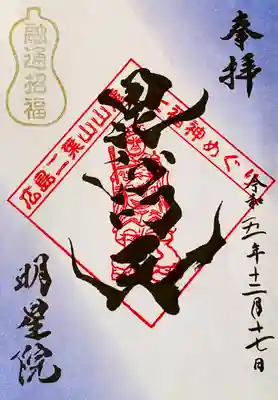 奉拝
令和五年十二月十七日
毘沙門天
広島二葉山山
福神めぐり
融通招福
明星院